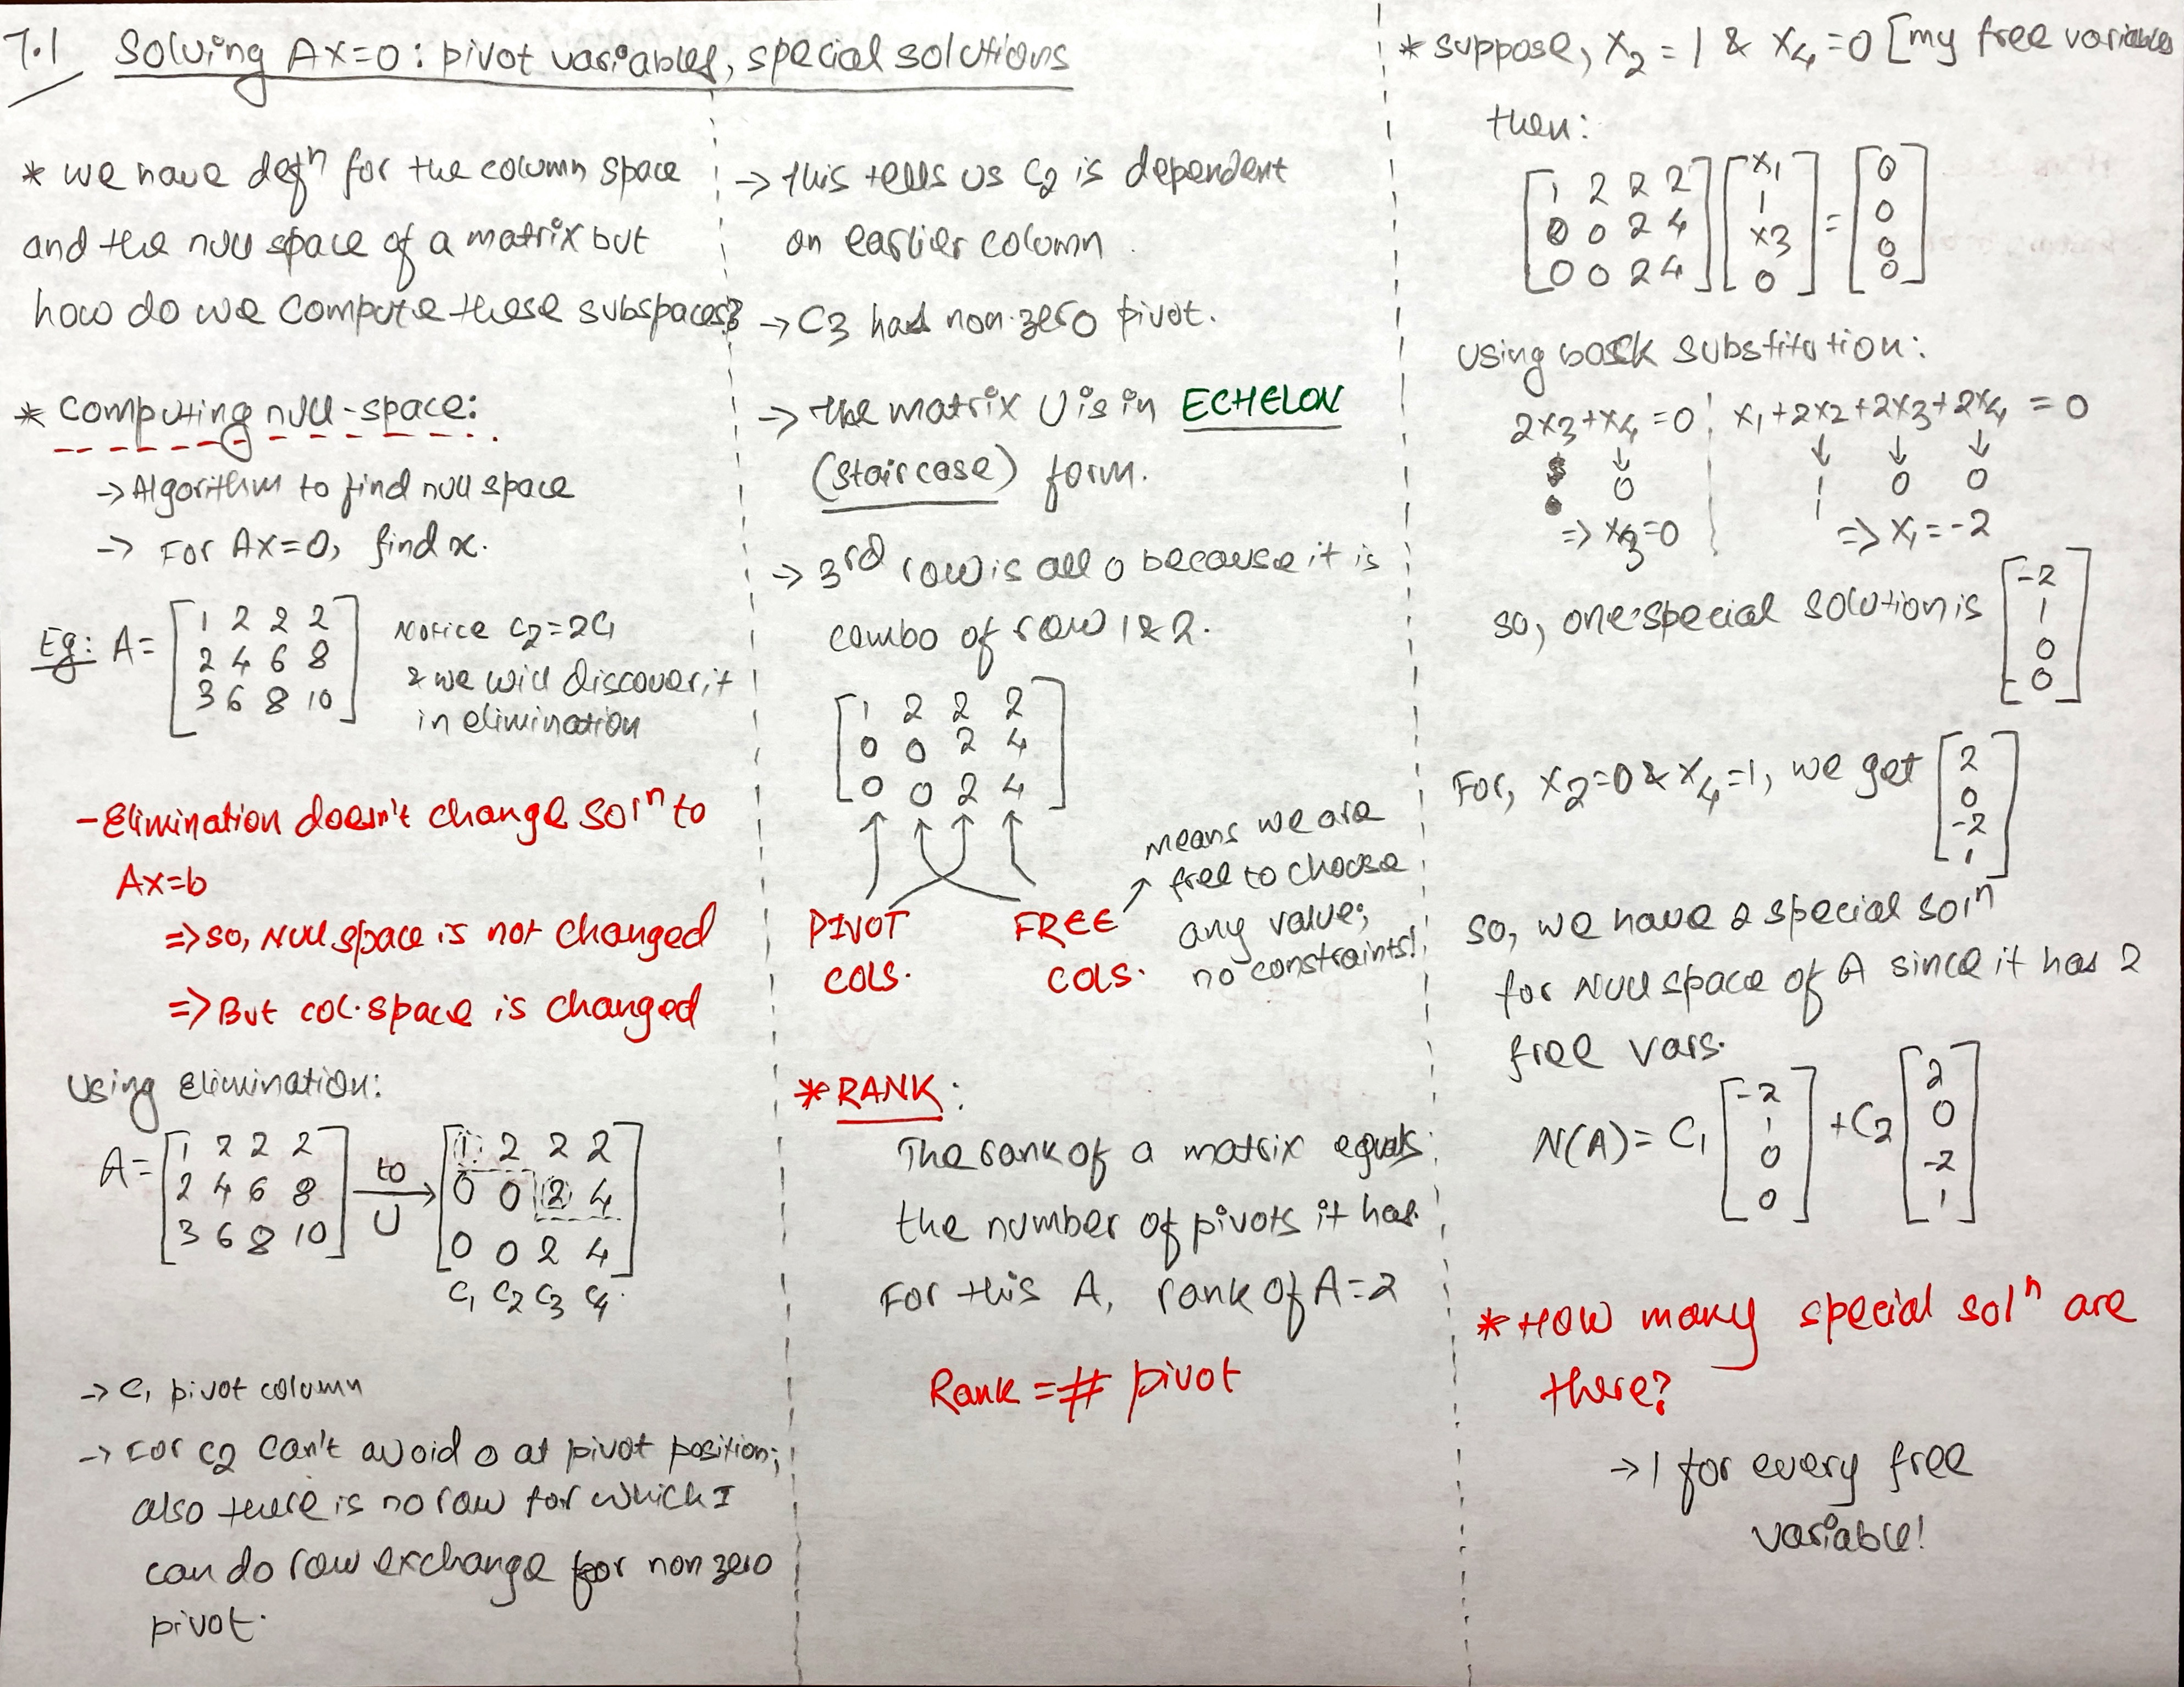 7.1 Solving Ax=0: pivot variables, special solutions
* we have defⁿ for the column space
and the null space of a matrix but
how do we compute these subspaces?
* Computing null-space:
-> Algorithm to find null space
-> For Ax=0, find x.
Eg: A= [1 2 2 2
2 4 6 8
3 6 8 10]
Notice C2=2C1
& we will discover it
in elimination
- Elimination doesn't change solⁿ to
Ax=b
=> so, Null space is not changed
=> But col. space is changed
Using Elimination:
A= [1 2 2 2
2 4 6 8
3 6 8 10]
to
U
[1 2 2 2
0 0 2 4
0 0 2 4]
C1 C2 C3 C4
-> C1 pivot column
-> For C2 can't avoid 0 at pivot position;
also there is no row for which I
can do row exchange for non zero
pivot.
-> this tells us C2 is dependent
on earlier column.
-> C3 has non-zero pivot.
-> the matrix U is in ECHELON
(staircase) form.
-> 3rd row is all 0 because it is
combo of row 1 & 2.
[1 2 2 2
0 0 2 4
0 0 2 4]
PIVOT
COLS.
FREE
COLS.
means we are
free to choose
any value;
no constraints!
* RANK:
The rank of a matrix equals
the number of pivots it has
For this A, rank of A=2
Rank = # pivot
* suppose, x2 = 1 & x4 = 0 [my free variables
then:
[1 2 2 2
0 0 2 4
0 0 2 4] [x1
1
x3
0] = [0
0
0
0]
Using back substitution:
2x3+x4=0
0
=> x3=0
x1+2x2+2x3+2x4 = 0
1 0 0
=> x1=-2
so, one special solution is [-2
1
0
0]
For, x2=0 & x4=1, we get [2
0
-2
1]
So, we have 2 special solⁿ
for Null space of A since it has 2
free vars.
N(A)= C1 [-2
1
0
0] + C2 [2
0
-2
1]
* How many special solⁿ are
there?
-> 1 for every free
variable!